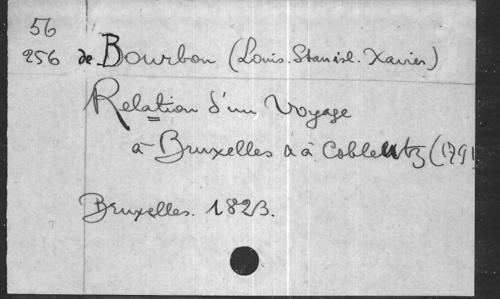 56
256 de Bourbon (Louis. Stanisl. Xavier)
Relation d'un Voyage
à Bruxelles à à Coblentz (1791
Bruxelles. 1823.